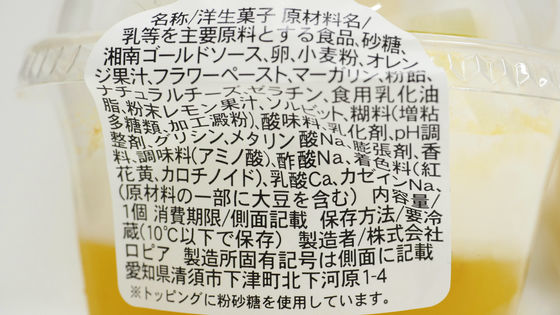 名称/洋生菓子 原材料名/
乳等を主要原料とする食品、砂糖、
湘南ゴールドソース、卵、小麦粉、オレン
ジ果汁、フラワーペースト、マーガリン、粉飴、
ナチュラルチーズ、ゼラチン、食用乳化油
脂、粉末レモン果汁、ソルビット、糊料(増粘
多糖類、加工澱粉)、酸味料、乳化剤、pH調
整剤、グリシン、メタリン酸Na、膨張剤、香
料、調味料(アミノ酸)、酢酸Na、着色料(紅
花黄、カロチノイド)、乳酸Ca、カゼインNa、
(原材料の一部に大豆を含む) 内容量/
1個 消費期限/側面記載 保存方法/要冷
蔵(10℃以下で保存) 製造者/株式会社
ロピア 製造所固有記号は側面に記載
愛知県清須市下津町北下河原1-4
※トッピングに粉砂糖を使用しています。